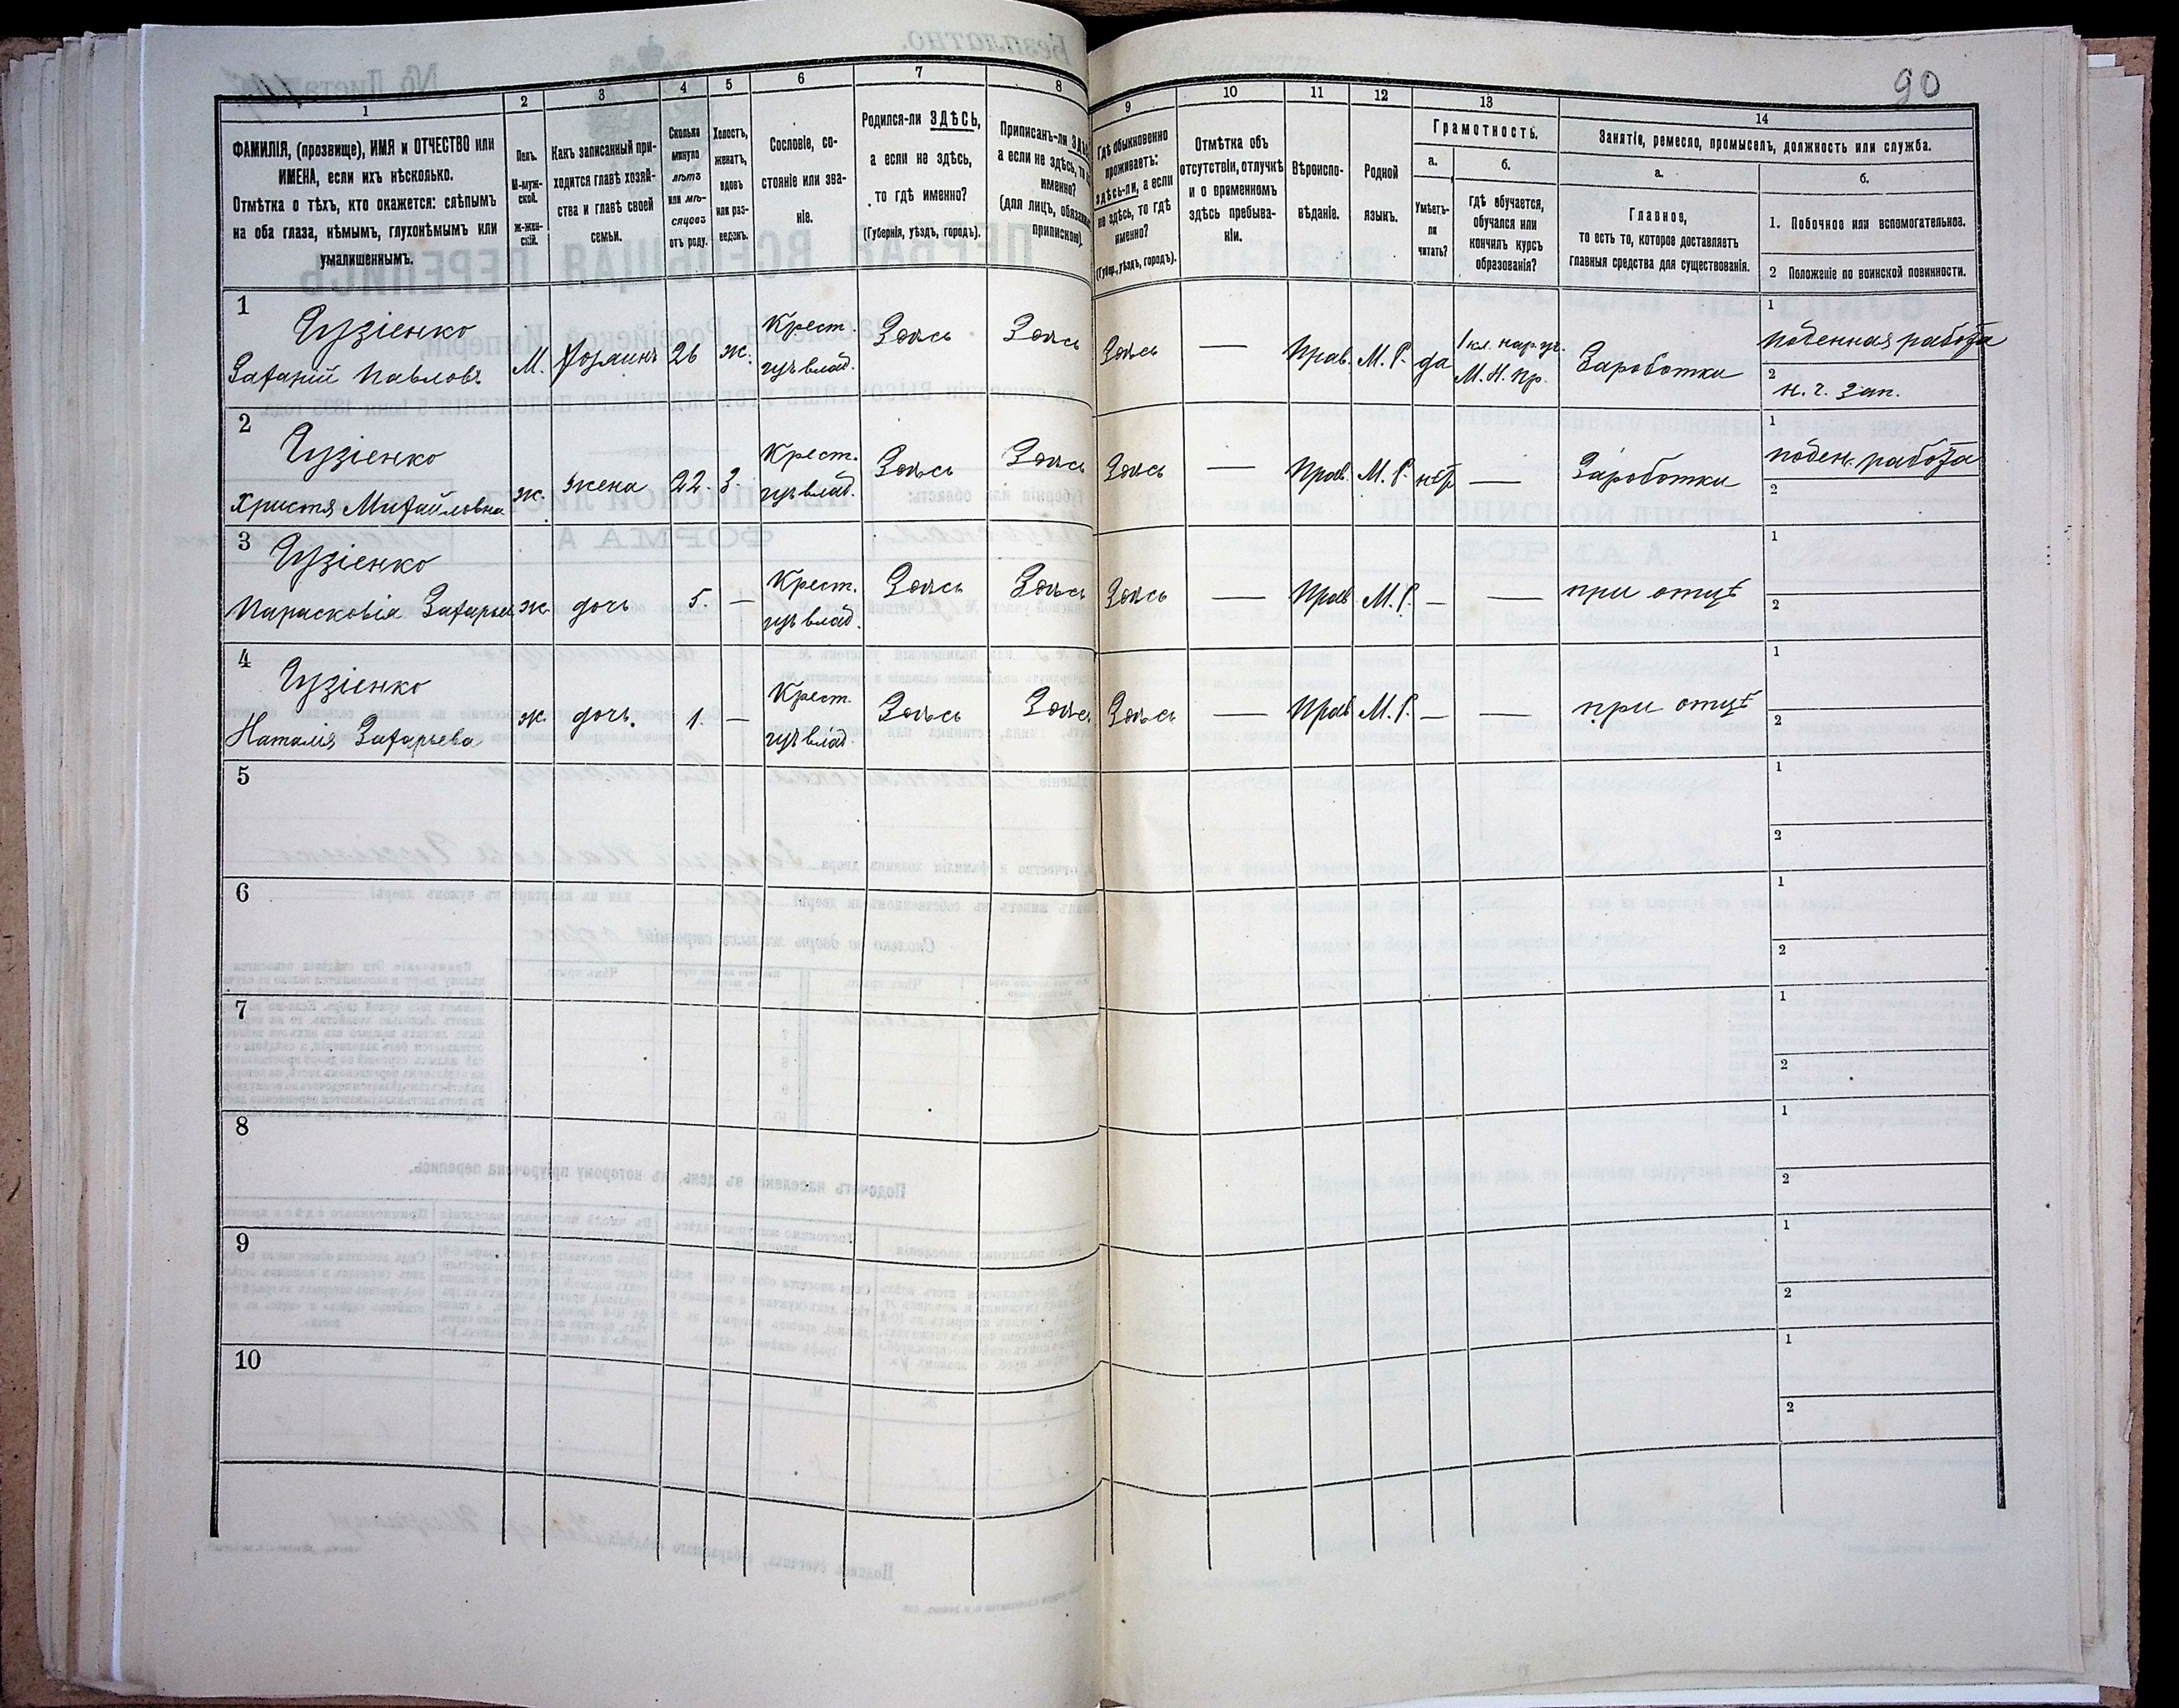 90
1
2
3
4
5
6
7
8
9
10
11
12
13
14
ФАМИЛІЯ, (прозвище), ИМЯ и ОТЧЕСТВО или
ИМЕНА, если ихъ нѣсколько.
Отмѣтка о тѣхъ, кто окажется: слѣпымъ
на оба глаза, нѣмымъ, глухонѣмымъ или
умалишеннымъ.
Полъ.
М-муж-
ской.
Ж-жен-
скій.
Какъ записанный при-
ходится главѣ хозяй-
ства и главѣ своей
семьи.
Сколько
минуло
лѣтъ
или мѣ-
сяцовъ
отъ роду.
Холостъ,
женатъ,
вдовъ
или раз-
веденъ.
Сословіе, со-
стояніе или зва-
ніе.
Родился-ли ЗДѢСЬ,
а если не здѣсь,
то гдѣ именно?
(Губернія, уѣздъ, городъ).
Приписанъ-ли
а если не здѣсь,
именно?
(для лицъ,
припискою).
Гдѣ обыкновенно
проживаетъ:
здѣсь-ли, а если
не здѣсь, то гдѣ
именно?
(Губер., уѣздъ, городъ).
Отмѣтка объ
отсутствіи, отлучкѣ
и о временномъ
здѣсь пребыва-
ніи.
Вѣроиспо-
вѣданіе.
Родной
языкъ.
Грамотность.
а.
Умѣетъ-
ли
читать?
б.
гдѣ обучается,
обучался или
кончилъ курсъ
образованія?
Занятіе, ремесло, промыселъ, должность или служба.
а.
Главное,
то есть то, которое доставляетъ
главныя средства для существованія.
б.
1. Побочное или вспомогательное.
2 Положеніе по воинской повинности.
1
Гузіенко
Захарій Павловъ
М.
хозяинъ
26
ж.
Крест.
влад.
Здѣсь
Здѣсь
Здѣсь
—
Прав.
М. Р.
да
1 кл. нар. уч.
М. Н. Пр.
Заработки
1
поденная работа
2
н. ч. зап.
2
Гузіенко
Христя Михайловна
ж.
жена
22.
З.
Крест.
влад.
Здѣсь
Здѣсь
Здѣсь
—
Прав.
М. Р.
нѣтъ
—
Заработки
1
поден. работа
2
3
Гузіенко
Парасковія Захарьев
ж.
дочь
5.
—
Крест.
влад.
Здѣсь
Здѣсь
Здѣсь
—
Прав
М. Р.
—
—
при отцѣ
1
2
4
Гузіенко
Наталія Захарьева
ж.
дочь.
1.
—
Крест.
влад.
Здѣсь
Здѣсь
Здѣсь
—
Прав
М. Р.
—
—
при отцѣ
1
2
5
1
2
6
1
2
7
1
2
8
1
2
9
1
2
10
1
2